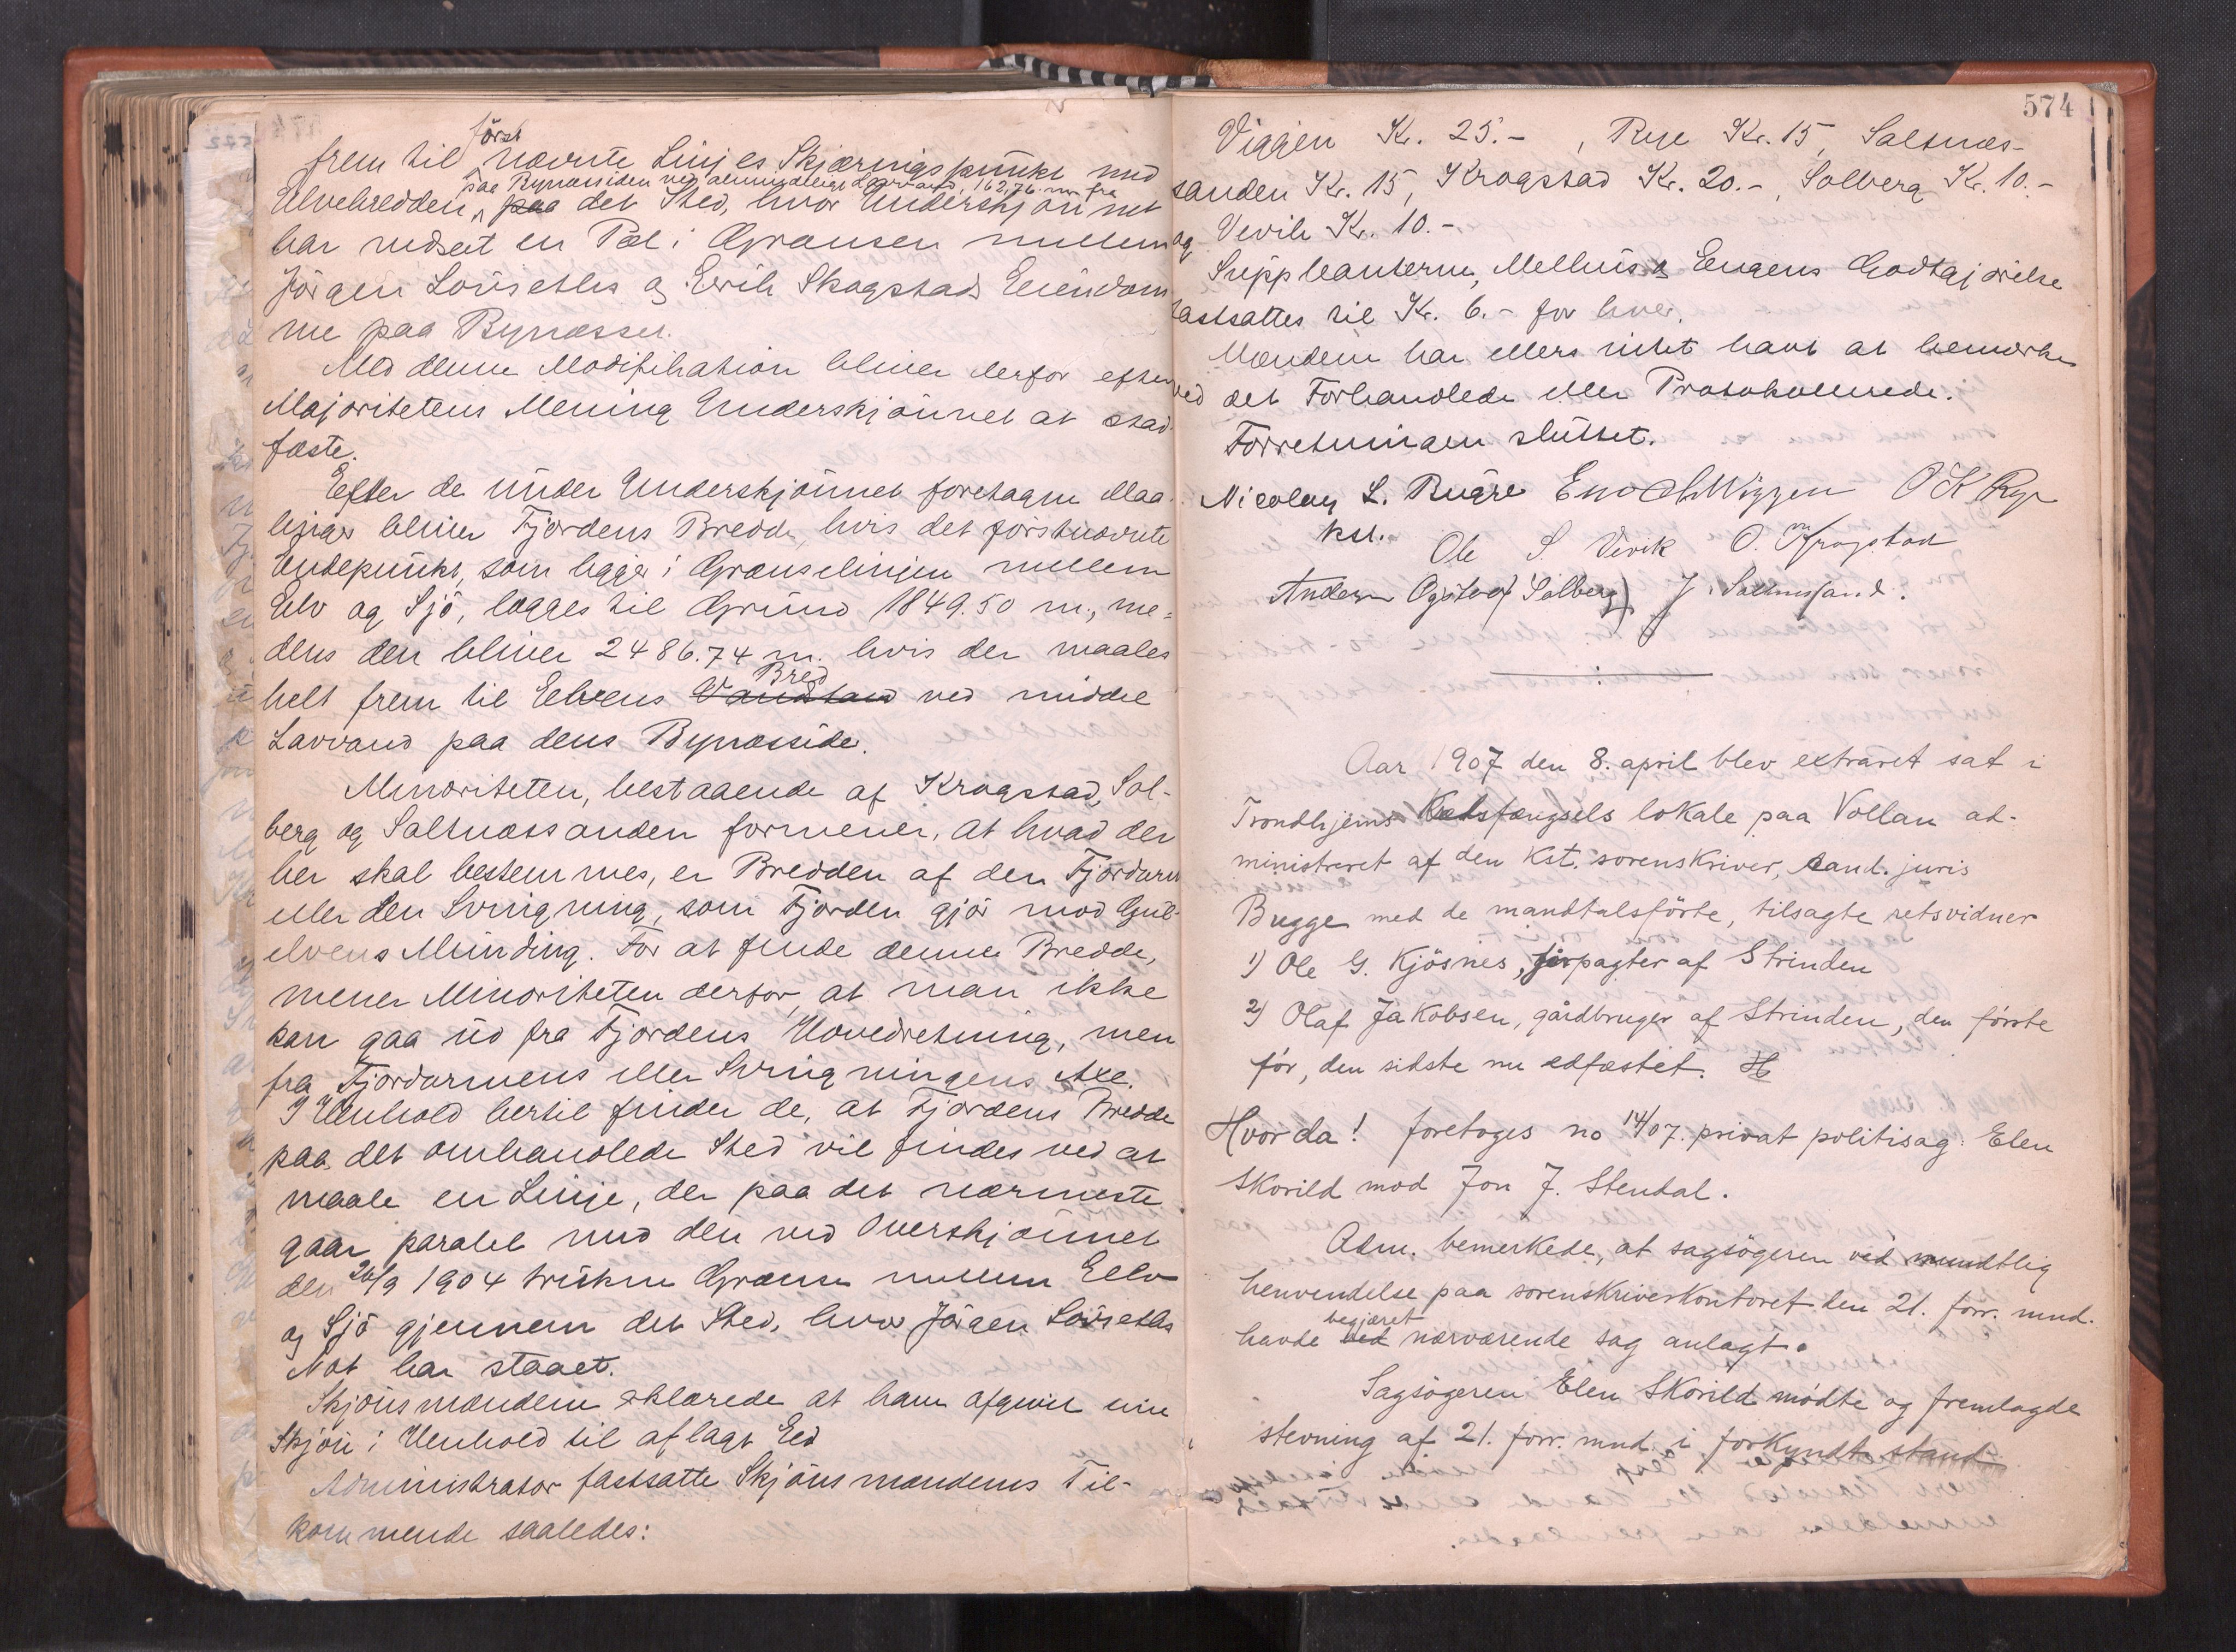 först
frem til nævnte Linjes Skjæringspunkt med
paa Bynæssiden ved almindeligt Lavvand, 162,76 m fra
Elvebredden, paa det Sted, hvor Underskjönnet
har nedsat en Pæl i Grænsen mellem
Jörgen Louseths og Eerik Skogstads Eiendom
me paa Bynæsset.
Med denne Modifikation bliver derfor efter
Majoritetens Mening Underskjönnet at stad
fæste.
Efter de under Underskjönnet foretagne Maa
linger bliver Fjordens Bredde, hvis det förstnævnte
Endepunkt, som ligger i Grænselinjen mellem
Elv og Sjö, lægges til Grund 1849.50 m., me=
dens den bliver 2486.74 m. hvis der maales
Bred
helt frem til Elvens Vandstand ved middel
Lavvand paa dens Bynæsside.
Minoriteten, bestaaende af Krogstad, Sol-
berg og Saltnæssanden formener, at hvad der
her skal bestemmes, er Bredden af den Fjordarm
eller den Svingning, som Fjorden gjör mod Gul-
elvens Munding. For at finde denne Bredde,
mener Minoriteten derfor, at man ikke
kan gaa ud fra Fjordens Hovedretning, men
fra Fjordarmens eller Svingningens Axe.
I Henhold hertil finder de, at Fjordens Bredde
paa det omhandlede Sted vil findes ved at
maale en Linje, der paa det nærmeste
gaar paralel med den ved Overskjönnet
den 26/9 1904 trukne Grænse mellem Elv
og Sjö gjennem det Sted, hvor Jörgen Louseths
Not har staaet.
Skjönsmændene erklærede at have afgivet sine
Skjön i Henhold til aflagt Eed
Administrator fastsatte Skjönsmændenes Til-
kommende saaledes:
574
Viggen Kr. 25.- , Rye Kr. 15, Saltnæs-
sanden Kr. 15, Krogstad Kr. 20.-, Solberg Kr. 10.-
og Vevik Kr. 10.-
Suppleanterne, Melhus & Engens Godtgjörelse
fastsattes til Kr. 6.- for hver.
Mændene har ellers intet havt at bemærke
ved det Forhandlede eller Protokollerede.
Forretningen sluttet.
Nicolay L. Bugge Enoch Wiggen O K Rye
kst. Ole S. Vevik O. M Krogstad
Anders Ogstad Solberg J. Saltnessand.
Aar 1907 den 8. april blev extraret sat i
Trondhjems Kretsfængsels lokale paa Vollan ad-
ministreret af den kst. sorenskriver, cand. juris
Bugge med de mandtalsförte, tilsagte retsvidner
1) Ole G. Kjösnes, forpagter af Strinden
2) Olaf Jakobsen, gårdbruger af Strinden, den förste
för, den sidste nu edfæstet.
Hvorda! foretoges no 14/07. privat politisag: Elen
Skorild mod Jon J. Stendal.
Adm. bemerkede, at sagsögeren ved mundtlig
henvendelse paa sorenskriverkontoret den 21. forr. mnd.
begjæret
havde ved nærværende sag anlagt.
Sagsögeren Elen Skorild mödte og fremlagde
stevning af 21. forr. mnd. i forkyndt stand